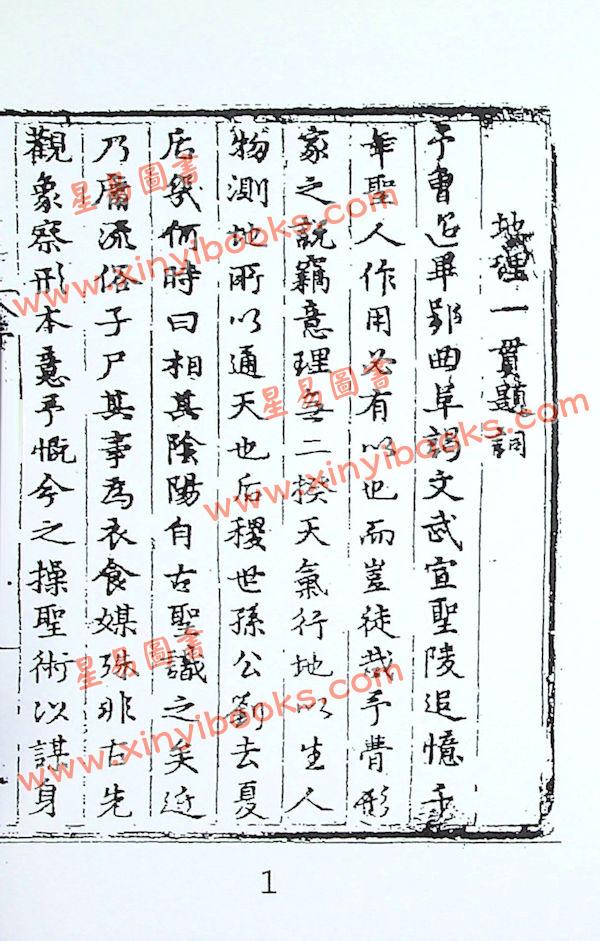 地理一貫題詞
予曹近畢郢曲阜謁文武宣聖陵追憶千
年聖人作用必有以也而豈徒哉予嘗形
家之說竊意理無二揆天氣行地以生人
物測地所以通天也后稷世孫公劉去夏
后幾何時曰相其陰陽自古聖識之矣近
乃庸流俗子尸其事為衣食媒殊非古先
觀象察形本意予慨今之操聖術以謀身
星易圖書
www.xinyibooks.com
星易圖書
www.xinyibooks.com
星易圖書
www.xinyibooks.com
1